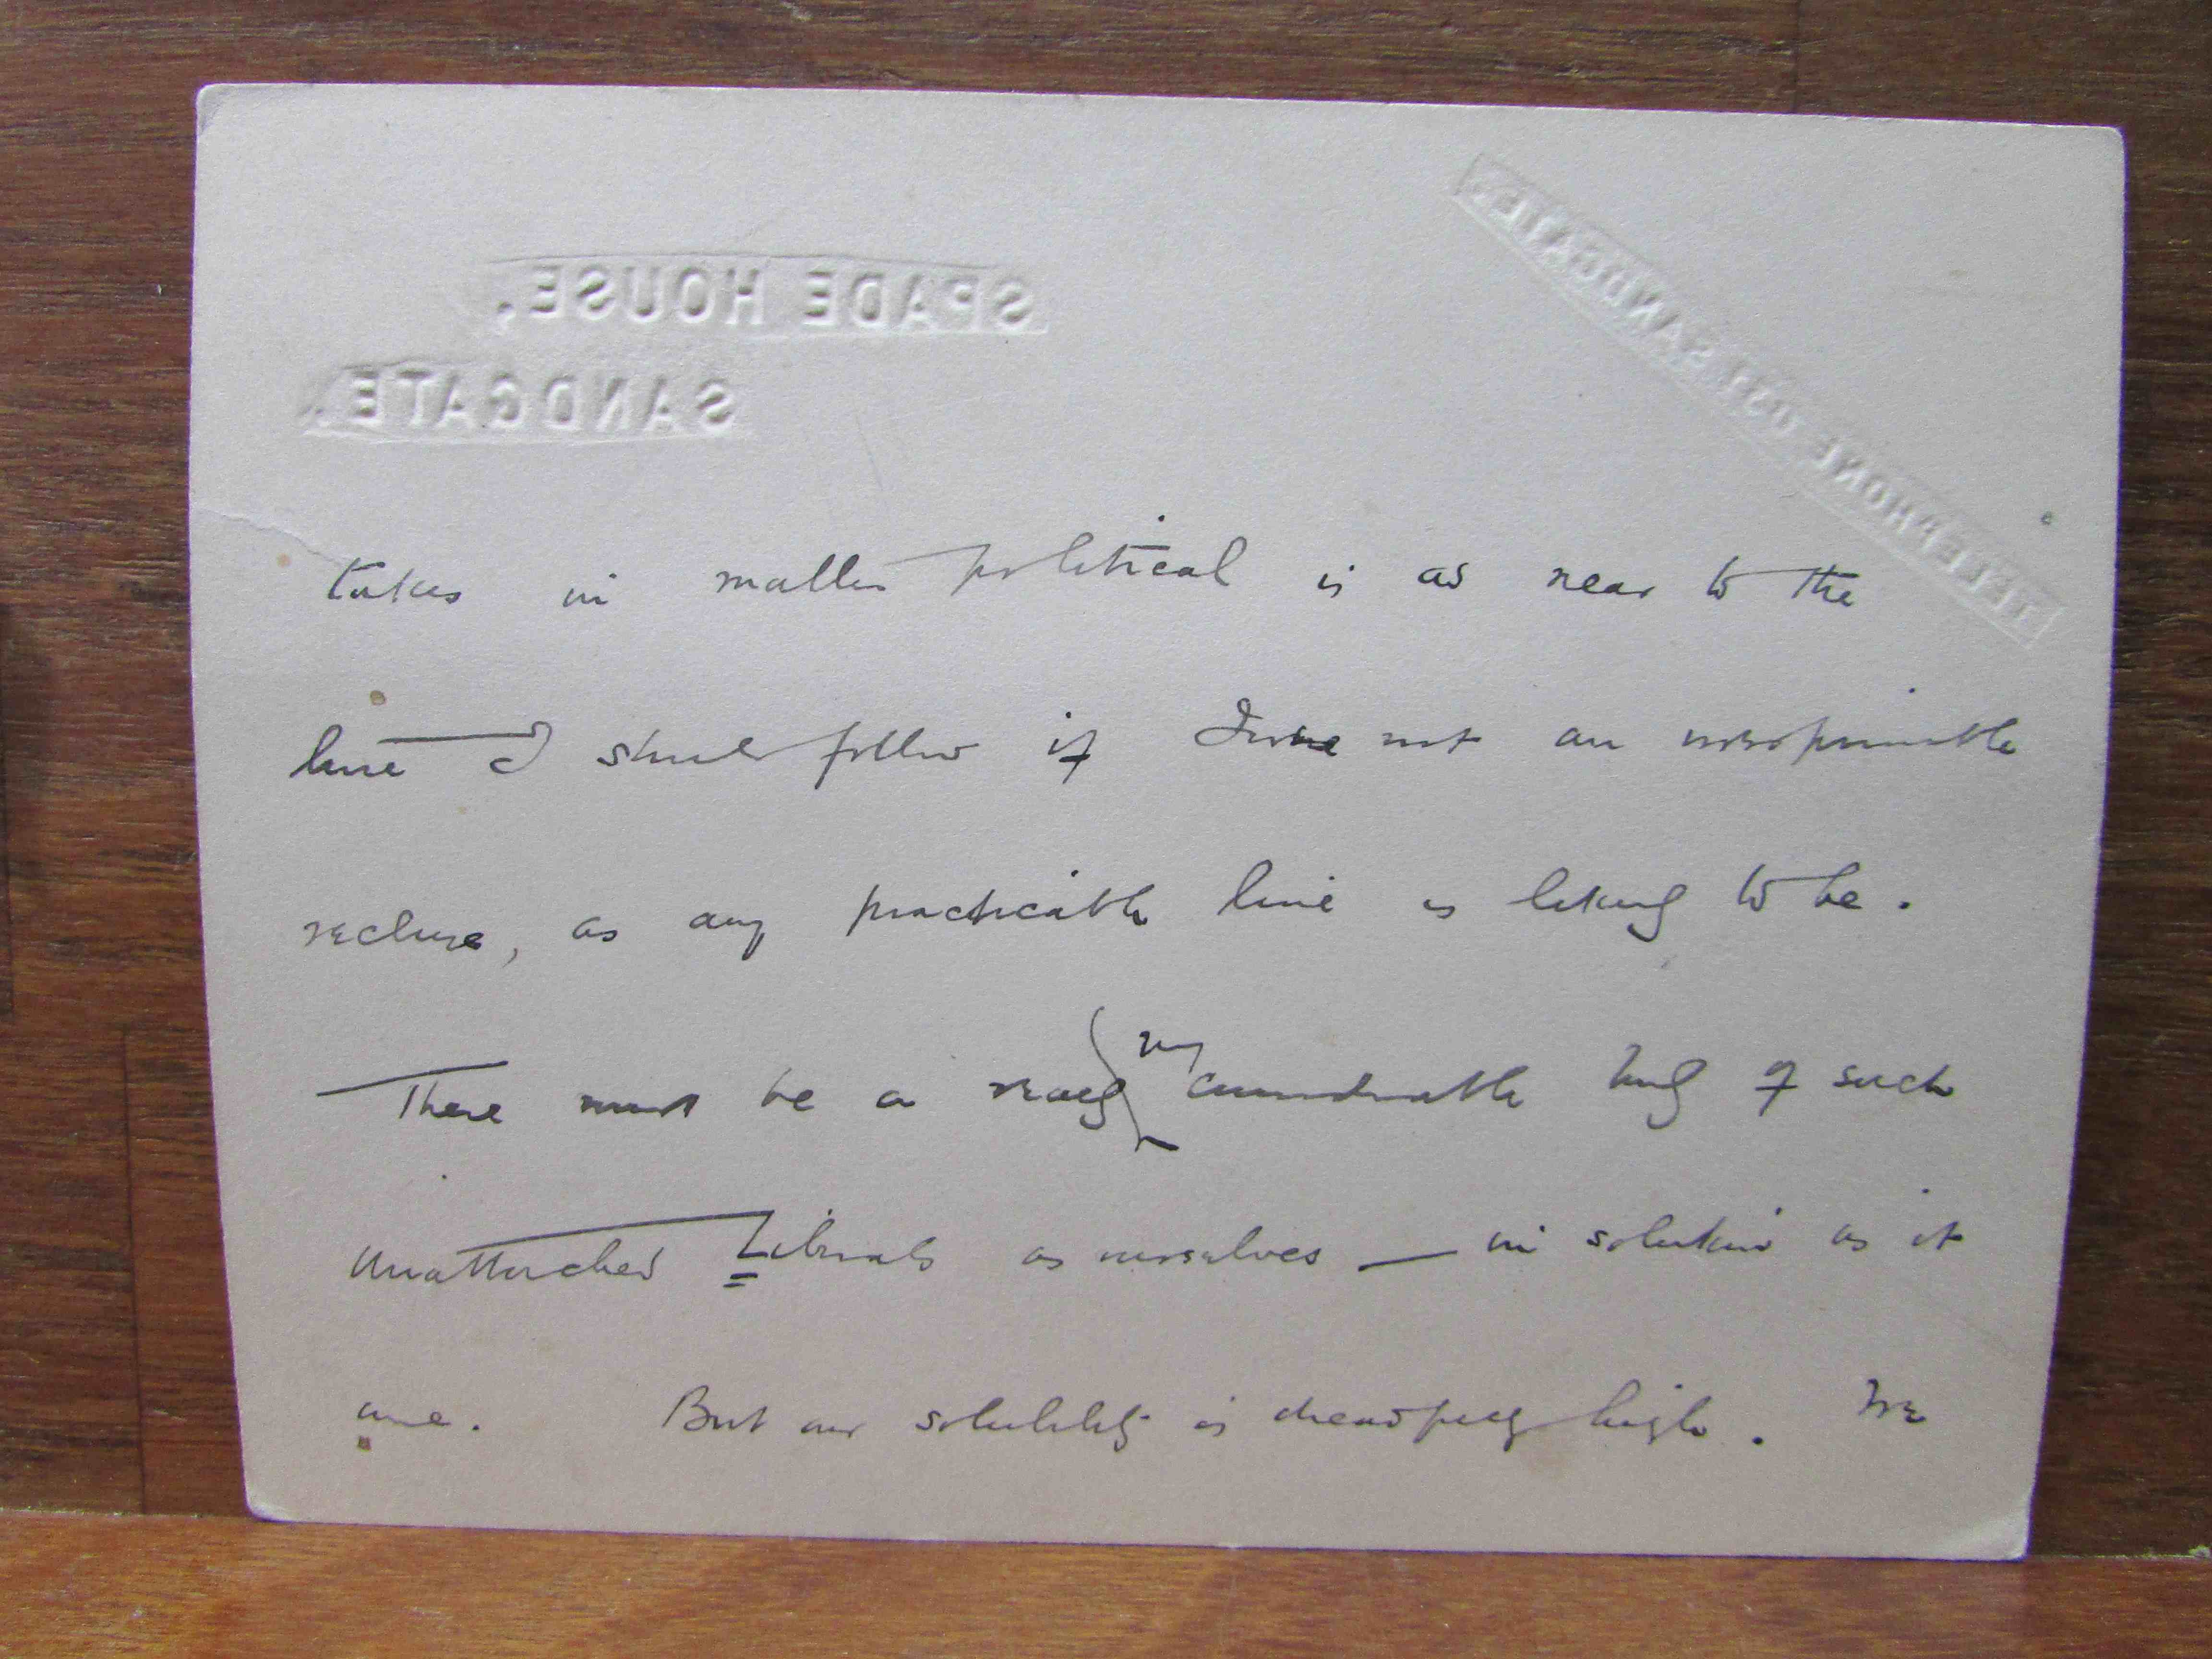 SPADE HOUSE,
SANDGATE.
TELEPHONE SANDGATE.
takes in matters political is as near to the
line I should follow if I were not an irresponsible
recluse, as any practicable line is likely to be.
There must be a really very considerable body of such
unattached Liberals as ourselves — in solution as it
were. But our solubility is dreadfully high. We